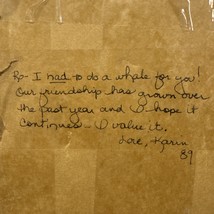 Ro- I had to do a whale for you!
Our friendship has grown over
the past year and I hope it
continues - I value it.
Love, Karin
89